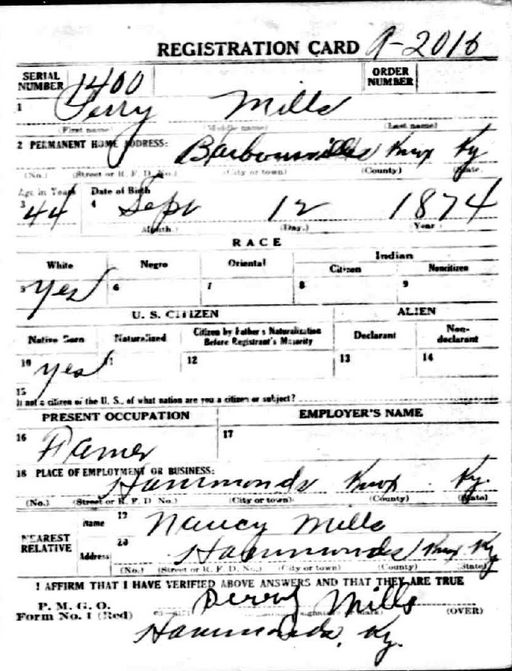 REGISTRATION CARD A-2016
SERIAL NUMBER 1400 ORDER NUMBER
1 Perry Mills
(First name) (Middle name) (Last name)
2 PERMANENT HOME ADDRESS: Barbourville Knox Ky
(No.) (Street or R. F. D. No.) (City or town) (County) (State)
Age in Years Date of Birth
3 44 4 Sept 12 1874
(Month.) (Day.) (Year.)
RACE
White Negro Oriental Indian
Citizen Noncitizen
5 Yes 6 7 8 9
U. S. CITIZEN ALIEN
Native Born Naturalized Citizen by Father's Naturalization Before Registrant's Majority Declarant Non-declarant
10 Yes 11 12 13 14
15
If not a citizen of the U. S., of what nation are you a citizen or subject?
PRESENT OCCUPATION EMPLOYER'S NAME
16 Famer 17
18 PLACE OF EMPLOYMENT OR BUSINESS:
Hammonds Knox Ky.
(No.) (Street or R. F. D. No.) (City or town) (County) (State)
NEAREST RELATIVE
Name 19 Nancy Mills
Address 20 Hammonds Knox Ky
(No.) (Street or R. F. D. No.) (City or town) (County) (State)
I AFFIRM THAT I HAVE VERIFIED ABOVE ANSWERS AND THAT THEY ARE TRUE
P. M. G. O.
Form No. 1 (Red) Perry Mills (OVER)
Hammonds, Ky.